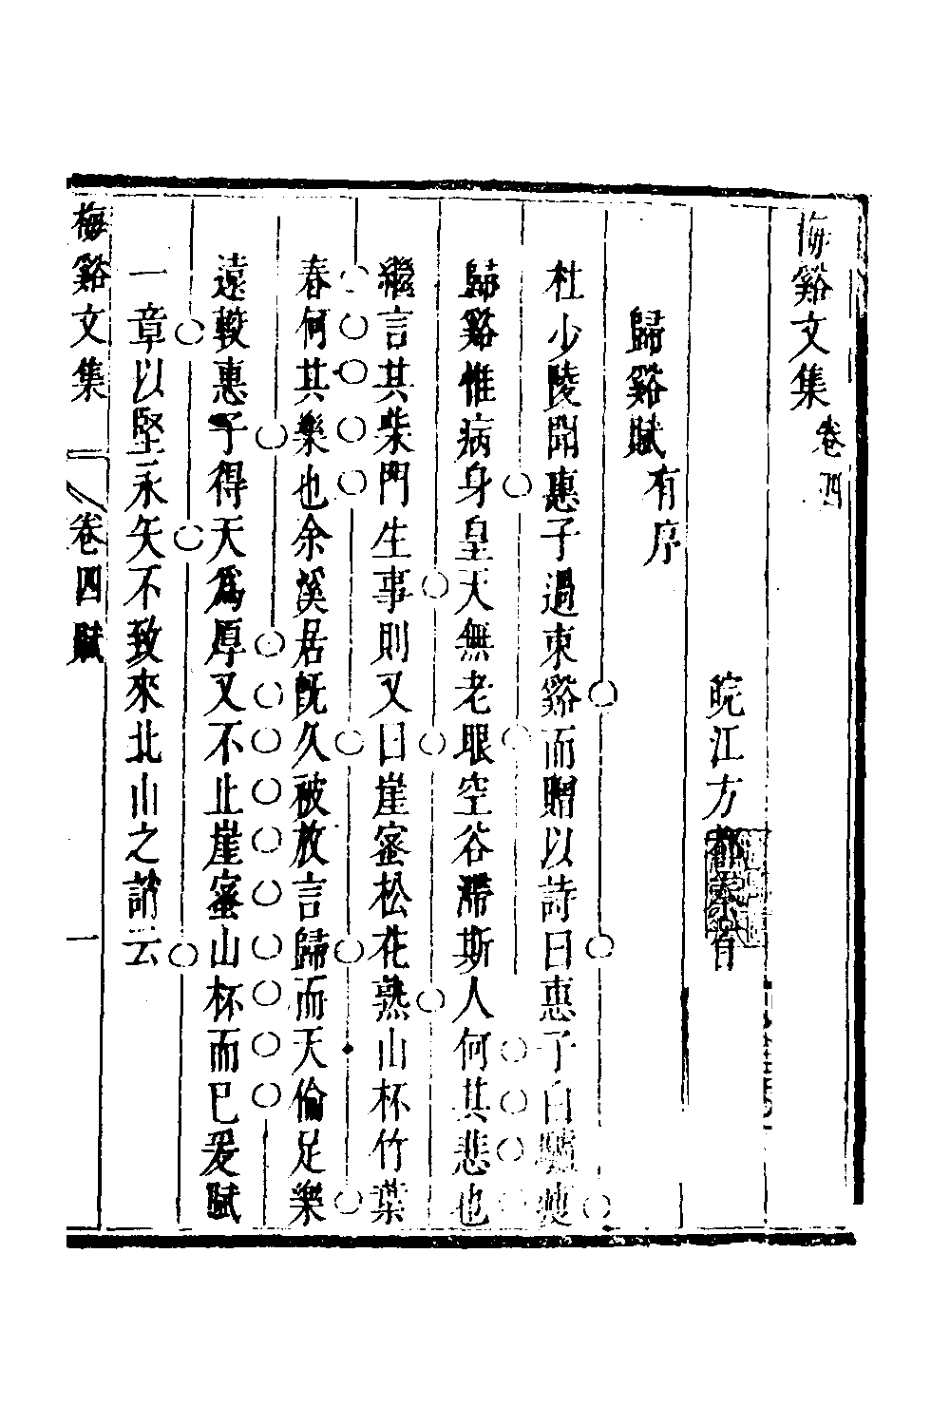 梅谿文集卷四
皖江方都秦者
歸谿賦有序
杜少陵聞惠子過東谿而贈以詩曰惠子白驢瘦
歸谿惟病身皇天無老眼空谷滯斯人何其悲也
繼言其柴門生事則又曰崖蜜松花熟山杯竹葉
春何其樂也余溪居旣久被放言歸而天倫足樂
遠較惠子得天爲厚又不止崖蜜山杯而已爰賦
一章以堅永矢不致來北山之誚云
梅谿文集 卷四賦 一